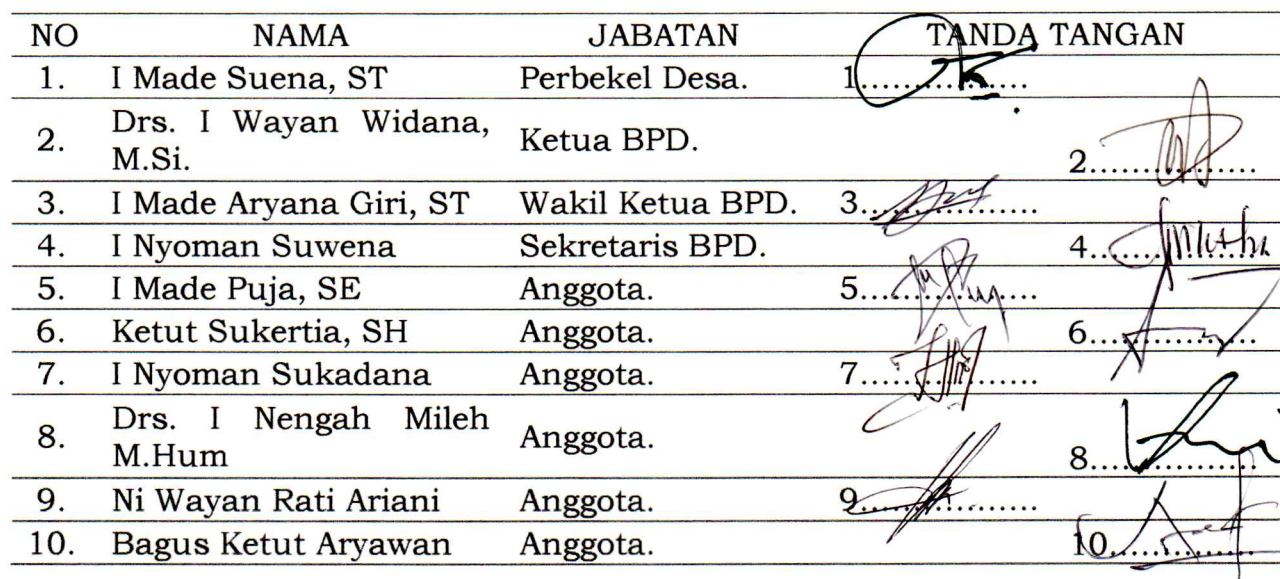 NO NAMA JABATAN TANDA TANGAN
1. I Made Suena, ST Perbekel Desa. 1...............
2. Drs. I Wayan Widana, M.Si. Ketua BPD. 2...............
3. I Made Aryana Giri, ST Wakil Ketua BPD. 3...............
4. I Nyoman Suwena Sekretaris BPD. 4...............
5. I Made Puja, SE Anggota. 5...............
6. Ketut Sukertia, SH Anggota. 6...............
7. I Nyoman Sukadana Anggota. 7...............
8. Drs. I Nengah Mileh M.Hum Anggota. 8...............
9. Ni Wayan Rati Ariani Anggota. 9...............
10. Bagus Ketut Aryawan Anggota. 10...............